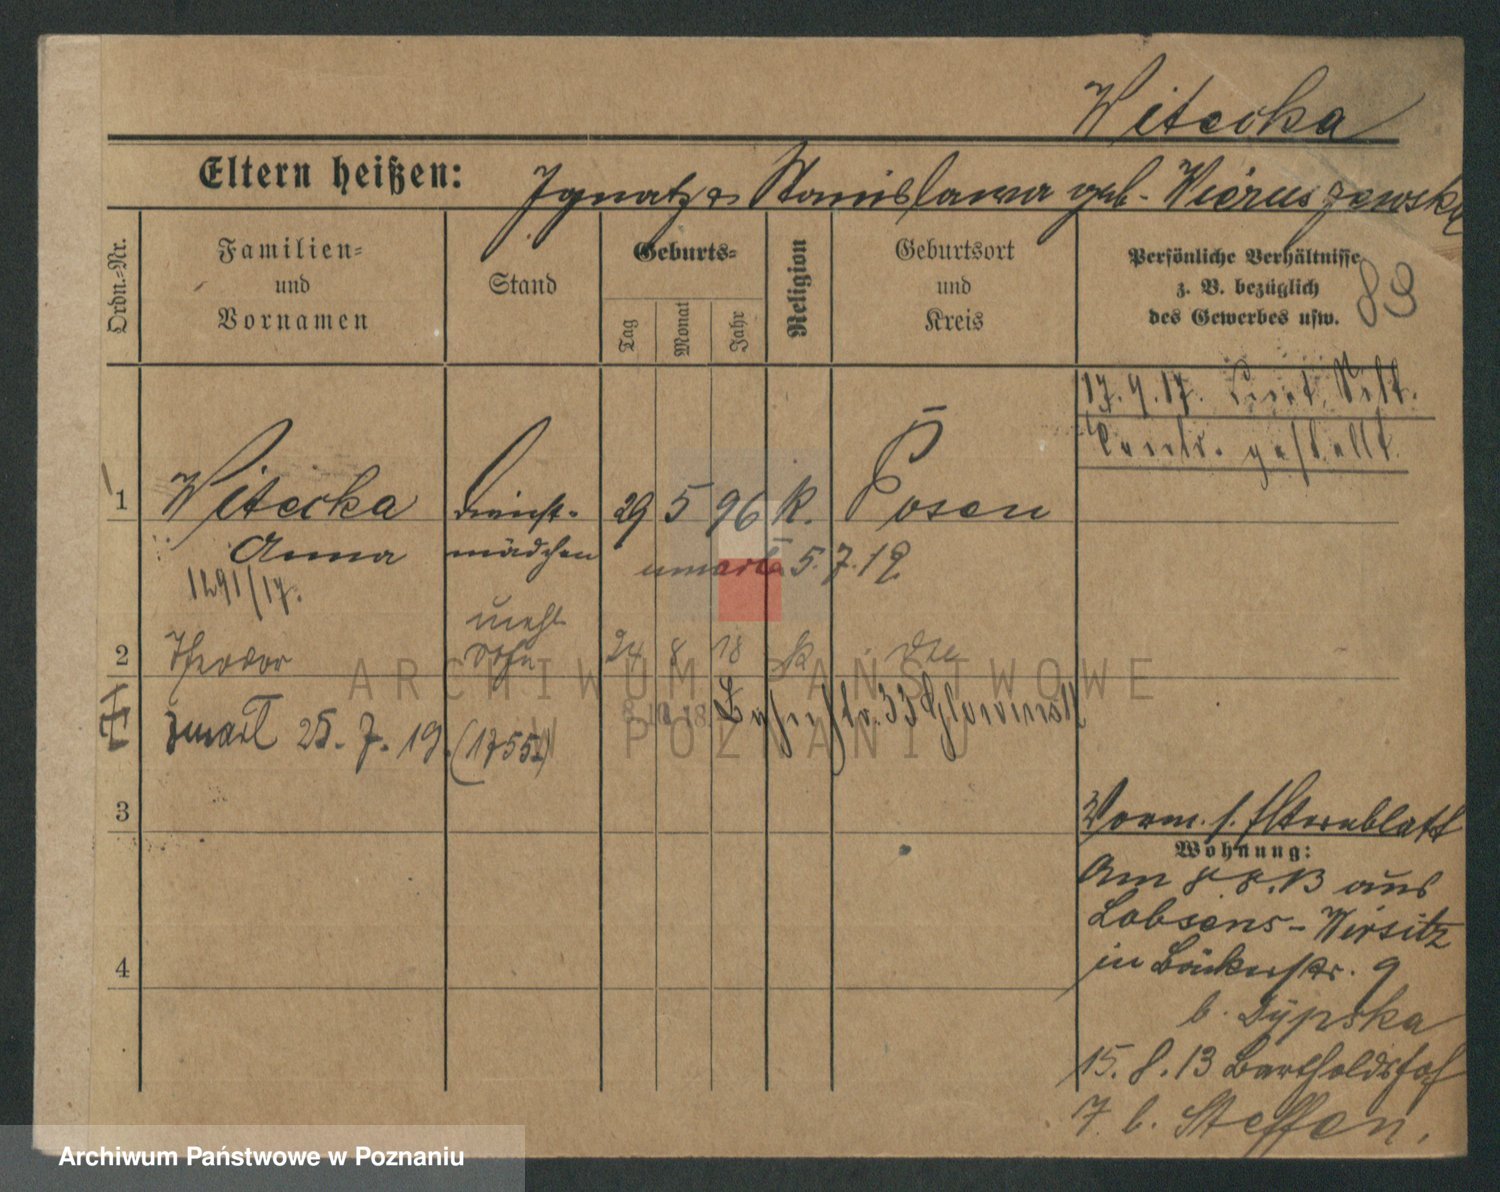 Witecka
Eltern heißen: Ignatz & Stanislawa geb. Wieruszewska
Ordn.-Nr.
Familien-
und
Vornamen
Stand
Geburts-
Tag
Monat
Jahr
Religion
Geburtsort
und
Kreis
Persönliche Verhältnisse
z. B. bezüglich
des Gewerbes usw.
83
17. 9. 17.
gestellt.
1 Witecka Dienst- 29 5 96 K. Posen
Anna mädchen
5. 7. 19
1291/17.
unehl
2 Theodor Sohn 24 8 18 K
25. 7. 19. (1755)
8. 10. 18. 33
3
4
Vorm. s. Elternblatt
Wohnung:
Am 8. 8. 13 aus
Lobsens-Wirsitz
in Bäckerstr. 9
b. Dypska
15. 8. 13 Bartholdshof
7 b. Steffen.
ARCHIWUM PAŃSTWOWE
W POZNANIU
Archiwum Państwowe w Poznaniu